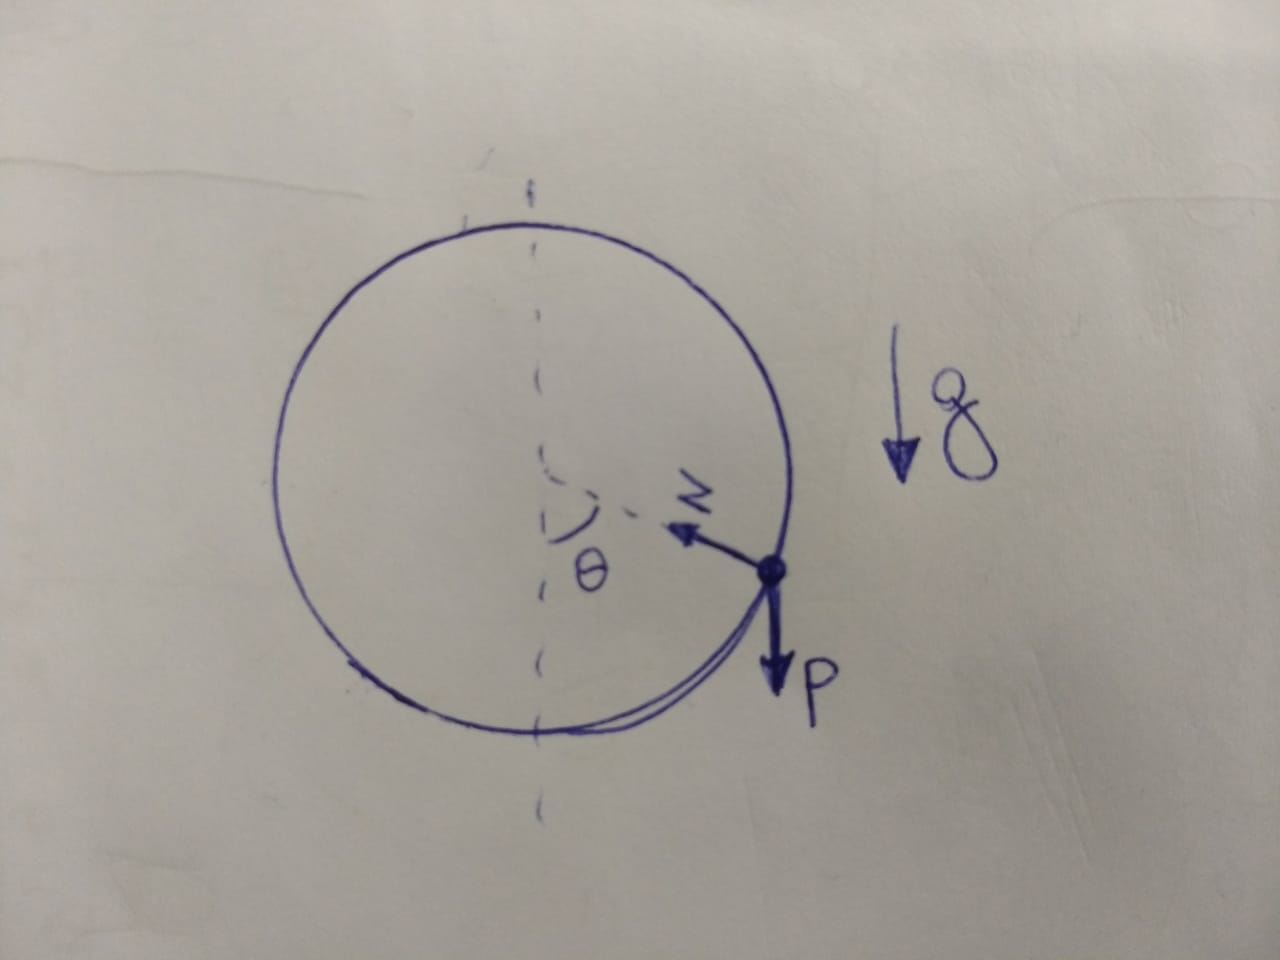 g
N
θ
P